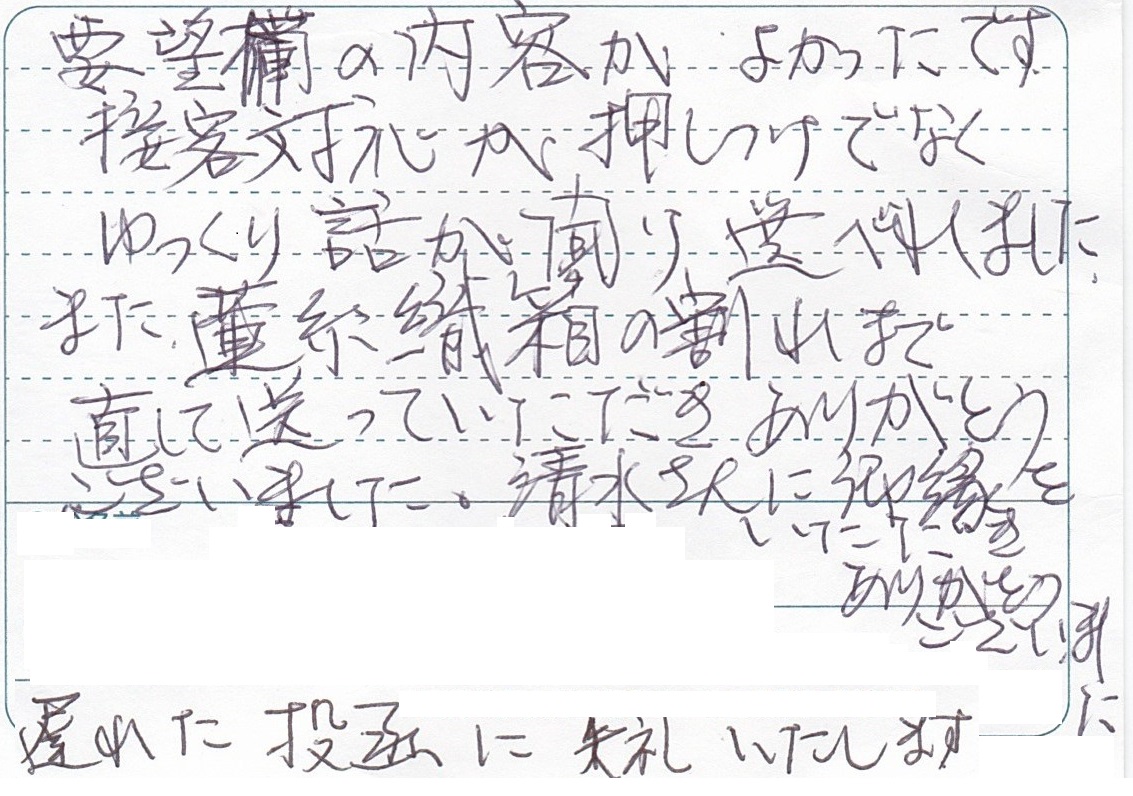 要望欄の内容がよかったです
接客対応が押しつけでなく
ゆっくり話が伺り選べれました
また 繊箱の割れまで
直して送っていただきありがとう
ございました。清水さんに御縁を
いただき
ありがとう
ございまし
た
遅れた投函に失礼いたします